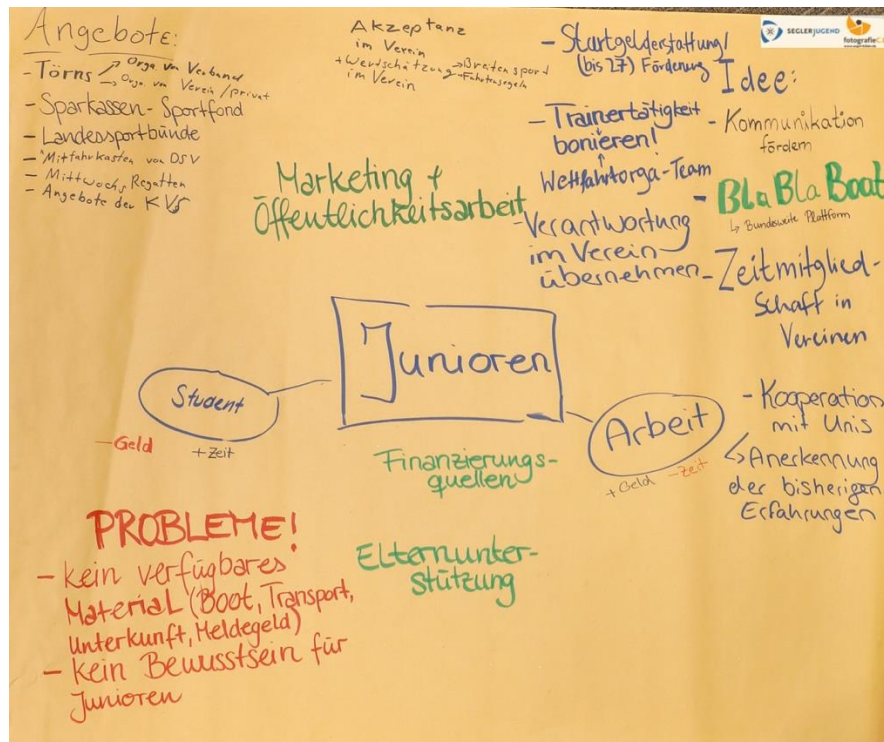 Angebote:
- Törns → Orga. von Verband
→ Orga. von Verein / privat
- Sparkassen-Sportfond
- Landessportbünde
- Mitfahrkasten von DSV
- Mittwochs Regatten
- Angebote der KVs
Akzeptanz
im Verein
+ Wertschätzung → Breitensport
im Verein → Fahrtensegeln
Marketing +
Öffentlichkeitsarbeit
- Startgelderstattung/
(bis 27) Förderung
- Trainertätigkeit
bonieren!
↑
Wettfahrtorga-Team
- Verantwortung
im Verein
übernehmen
SEGLERJUGEND
Idee:
- Kommunikation
fördern
- BLa BLa Boot
↳ Bundesweite Plattform
- Zeitmitglied-
schaft in
Vereinen
- Kooperation
mit Unis
↳ Anerkennung
der bisherigen
Erfahrungen
Junioren
Student
- Geld
+ Zeit
Arbeit
+ Geld - Zeit
Finanzierungs-
quellen
Elternunter-
stützung
PROBLEME!
- kein verfügbares
Material (Boot, Transport,
Unterkunft, Meldegeld)
- kein Bewusstsein für
Junioren